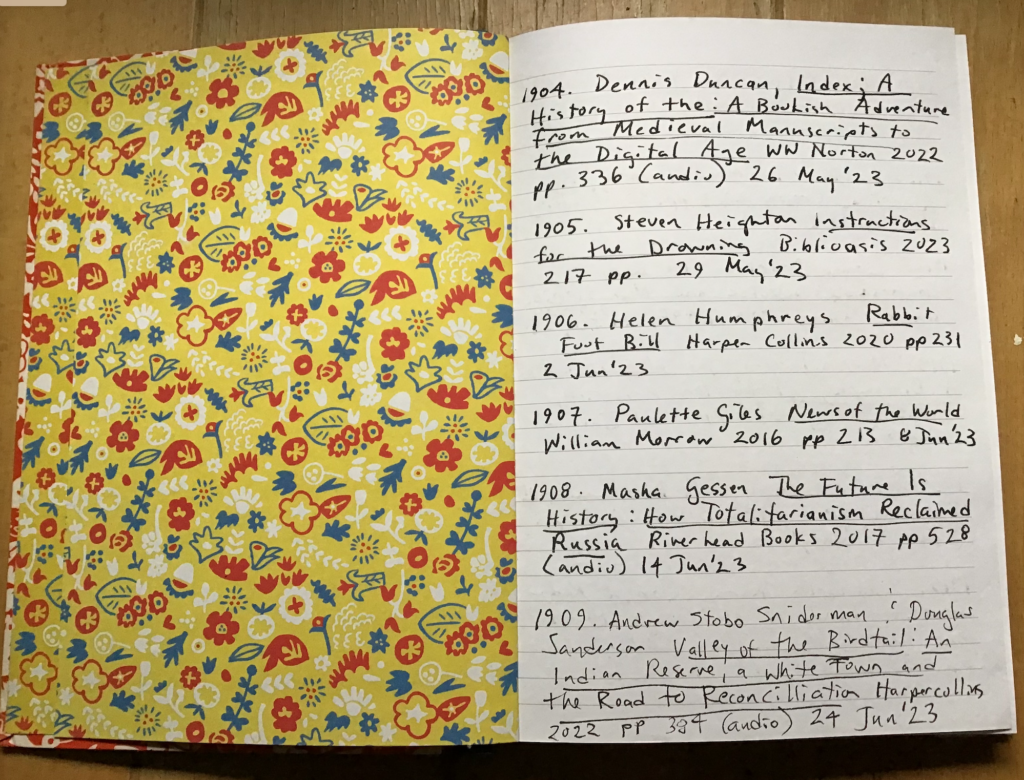 1904. Dennis Duncan, Index; A
History of the: A Bookish Adventure
from Medieval Manuscripts to
the Digital Age WW Norton 2022
pp. 336 (audio) 26 May '23
1905. Steven Heighton Instructions
for the Drowning Biblioasis 2023
217 pp. 29 May '23
1906. Helen Humphreys Rabbit
Foot Bill Harper Collins 2020 pp 231
2 Jun '23
1907. Paulette Giles News of the World
William Morrow 2016 pp 213 8 Jun '23
1908. Masha Gessen The Future Is
History: How Totalitarianism Reclaimed
Russia Riverhead Books 2017 pp 528
(audio) 14 Jun '23
1909. Andrew Stobo Sniderman & Douglas
Sanderson Valley of the Birdtail: An
Indian Reserve, a White Town and
the Road to Reconcilliation Harpercollins
2022 pp 384 (audio) 24 Jun '23